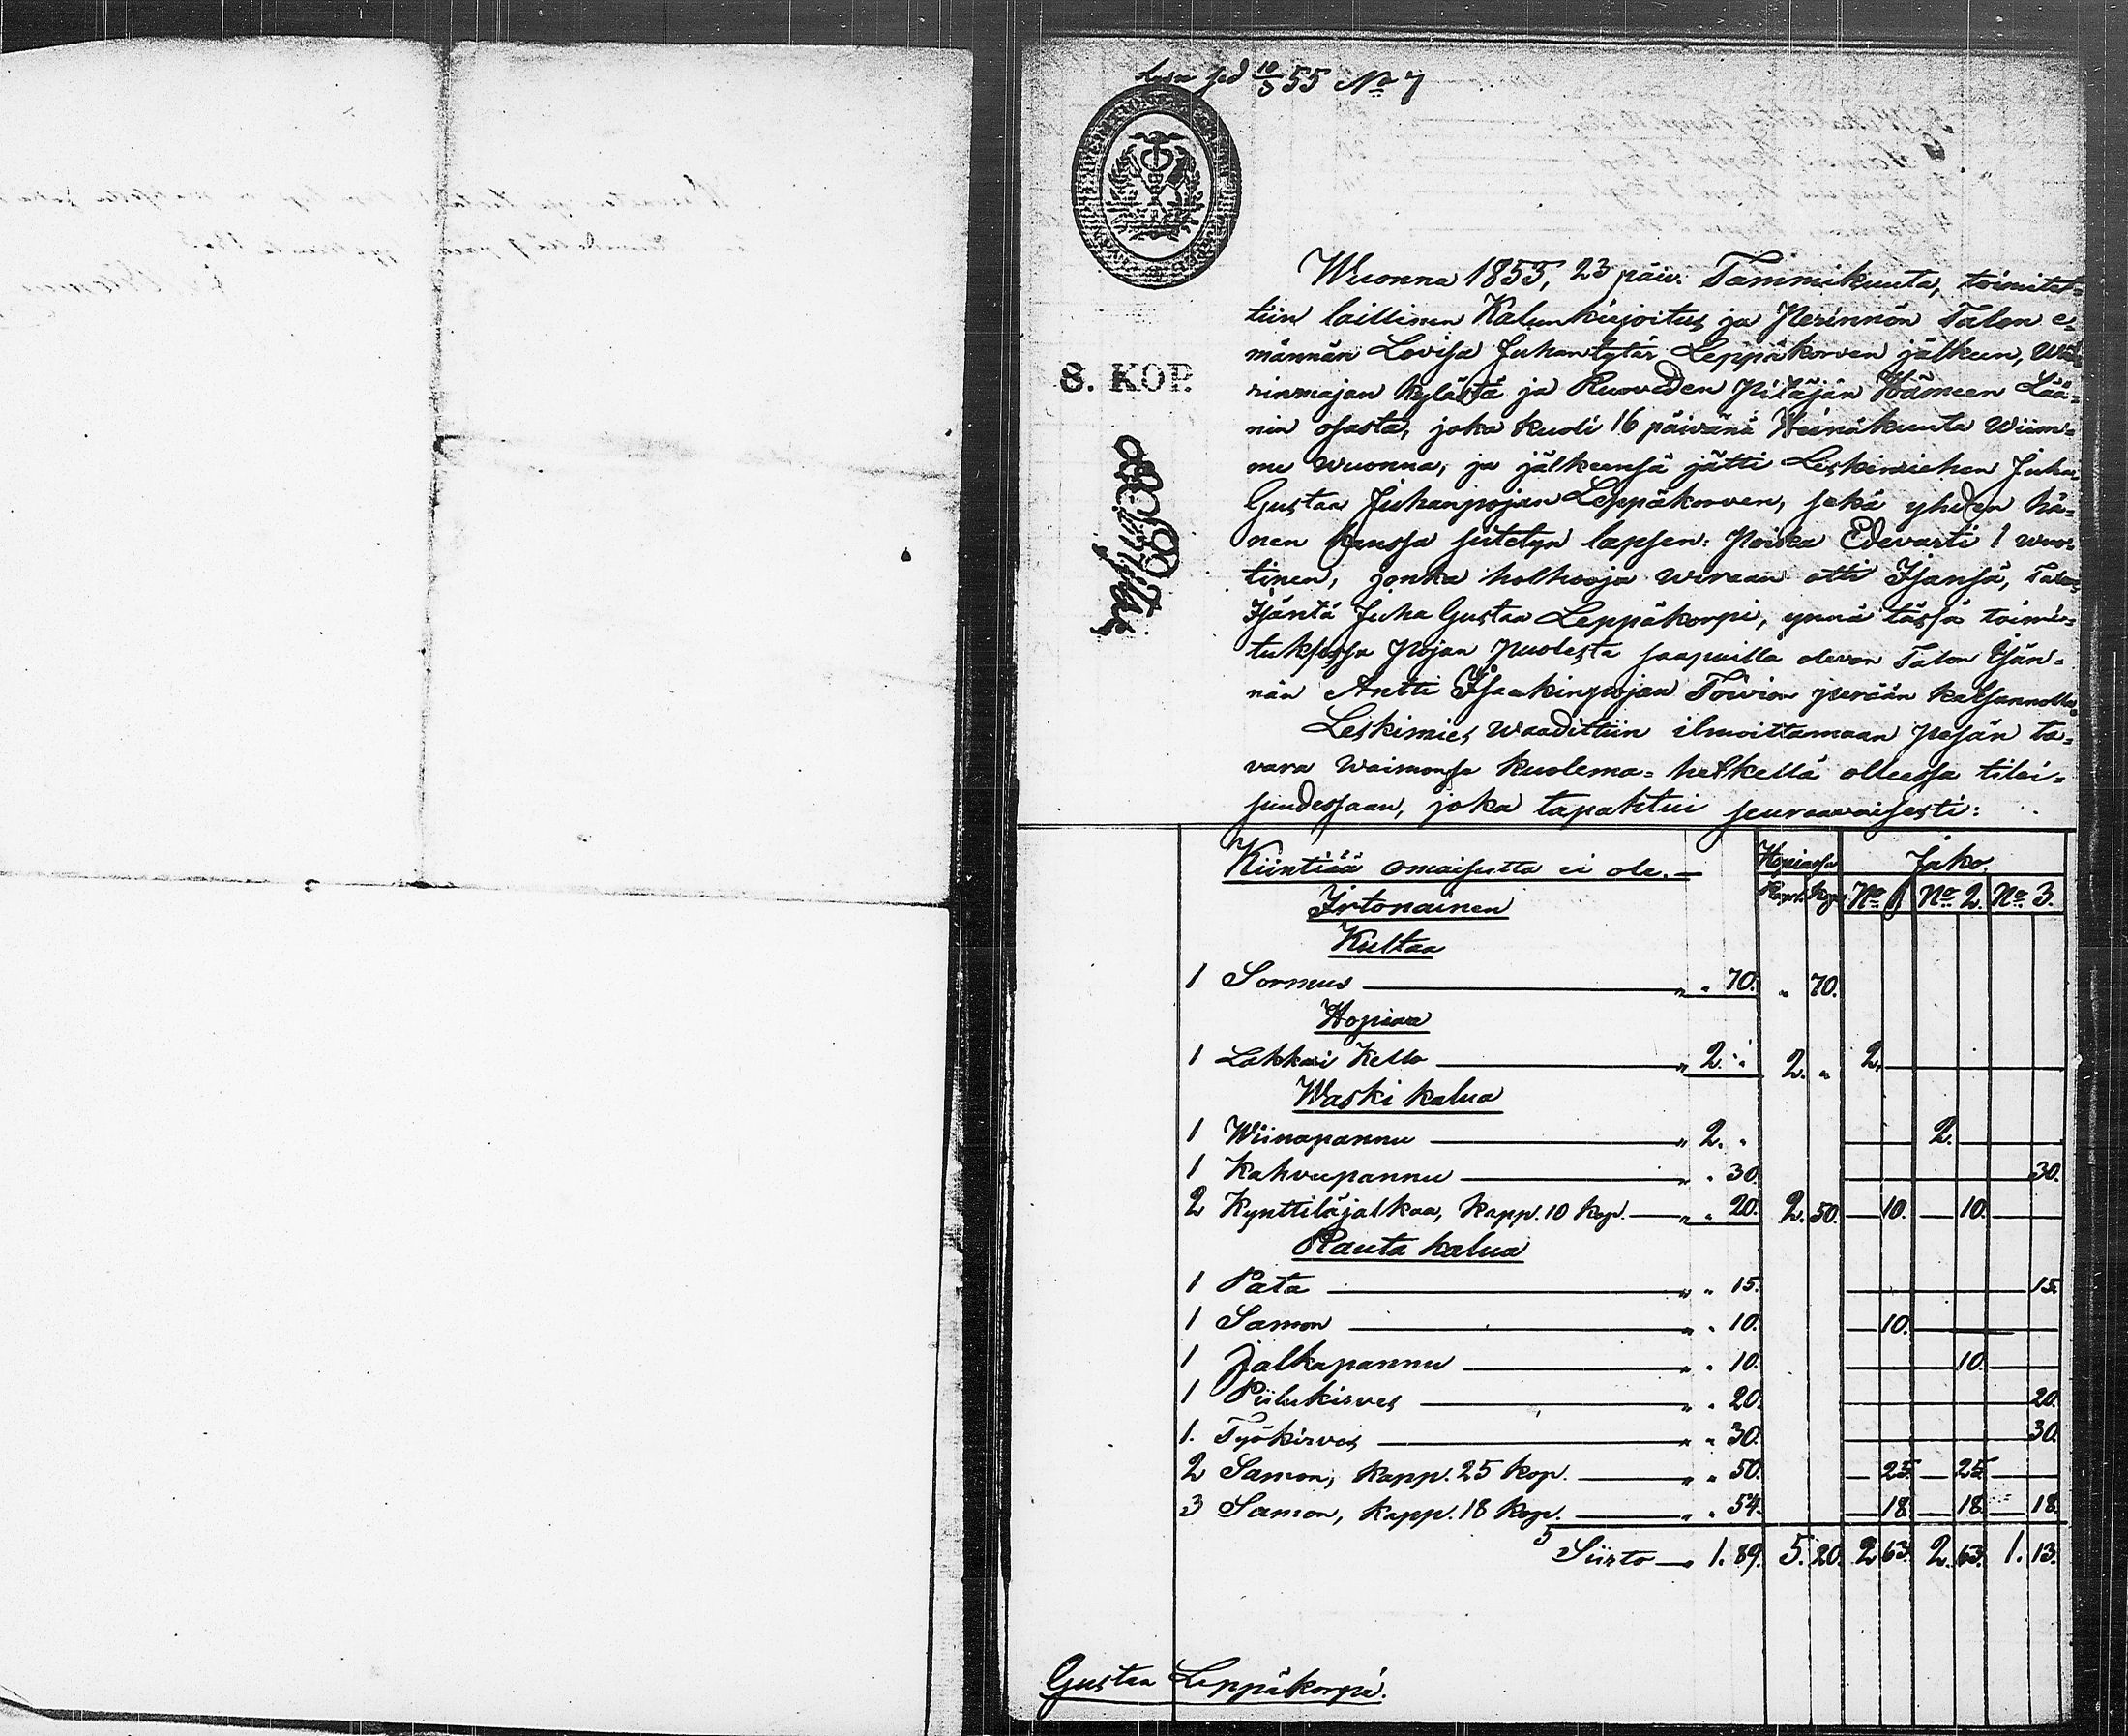 10/3 55 No 7
8. KOP.
Wuonna 1855, 23 päiv. Tammikuuta, toimitet=
tiin laillinen Kalunkirjoitus ja Perinnön Talon e=
männän Lovisa Juhantytär Leppäkorven jälkeen,
rinmajan kylästä ja Ruoveden Pitäjän Hämeen Lää=
nin osasta, joka kuoli 16 päivänä Heinäkuuta Wiim=
me wuonna, ja jälkeensä jätti Leskimiehen Juha
Gustaa Juhanpojan Leppäkorven, sekä yhden hä=
nen kanssa siitetyn lapsen: Poika Edevarti 1 wuo=
tinen, jonka holhooja wiraan otti Isänsä, Talon
Isäntä Juha Gustaa Leppäkorpi, ynnä tässä toimi=
tuksessa Pojan Puolesta saapuilla olevan Talon Isän=
nän Antti Isaakinpojan Toivion perään katsannolla.
Leskimies waadittiin ilmoittamaan Pesän ta=
vara Waimonsa kuolema=hetkellä olleessa tilai=
suudessaan, joka tapahtui seuraavaisesti:
Kiintiää omaisutta ei ole.— Hopiassa Jako.
Irtonainen Rupl. Kop. No 1. No 2. No 3.
Kultaa
1 Sormus — " " 70. " 70.
Hopiaa
1 Lakkari Kello — " 2. " 2. " 2.
Waski kalua
1 Wiinapannu — " 2. " 2.
1 Kahveepannu — " " 30. 30.
2 Kynttiläjalkaa, kapp. 10 kop. — " " 20. 2. 50. 10. 10.
Rauta kalua
1 Pata — " " 15. 15.
1 Samon — " " 10. 10.
1 Jalkapannu — " " 10. 10.
1 Piilukirves — " " 20. 20.
1. Työkirves — " " 30. 30.
2 Samon, kapp. 25 kop. — " " 50. 25. 25.
3 Samon, kapp. 18 kop. — " " 54. 18. 18. 18.
Siirto — 1. 89. 5. 20. 2 63. 2. 63. 1. 13.
Gustaa Leppäkorpi.